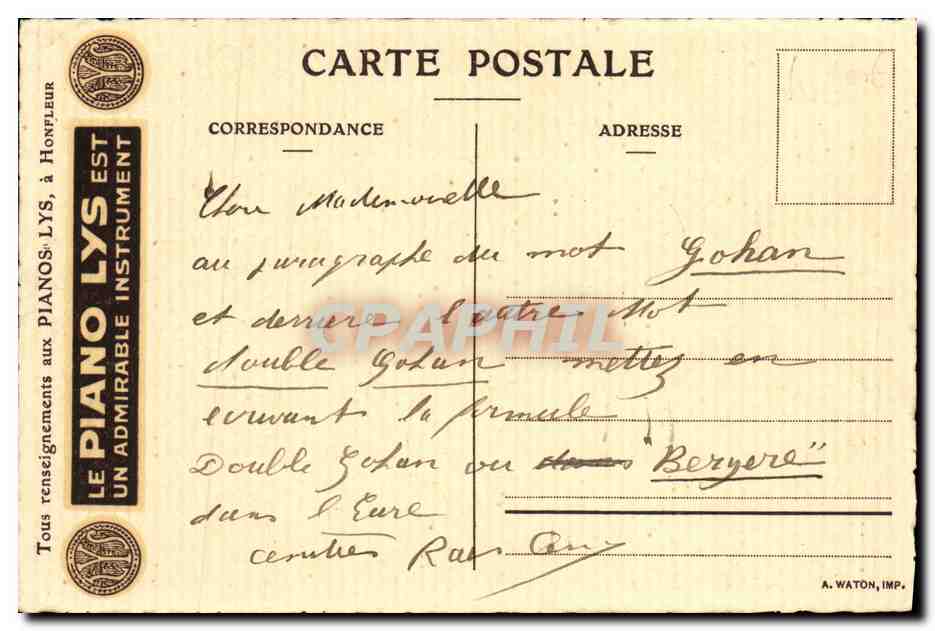 Tous renseignements aux PIANOS "LYS", à HONFLEUR
LE PIANO LYS EST
UN ADMIRABLE INSTRUMENT
CARTE POSTALE
CORRESPONDANCE
ADRESSE
Mademoiselle
au paragraphe du mot Gohan
et derriere l'autre Mot
double Gohan mettez en
ecrivant la formule
Double Gohan ou "Bergere"
dans l'Eure
A. WATON, IMP.
CPAPHIL